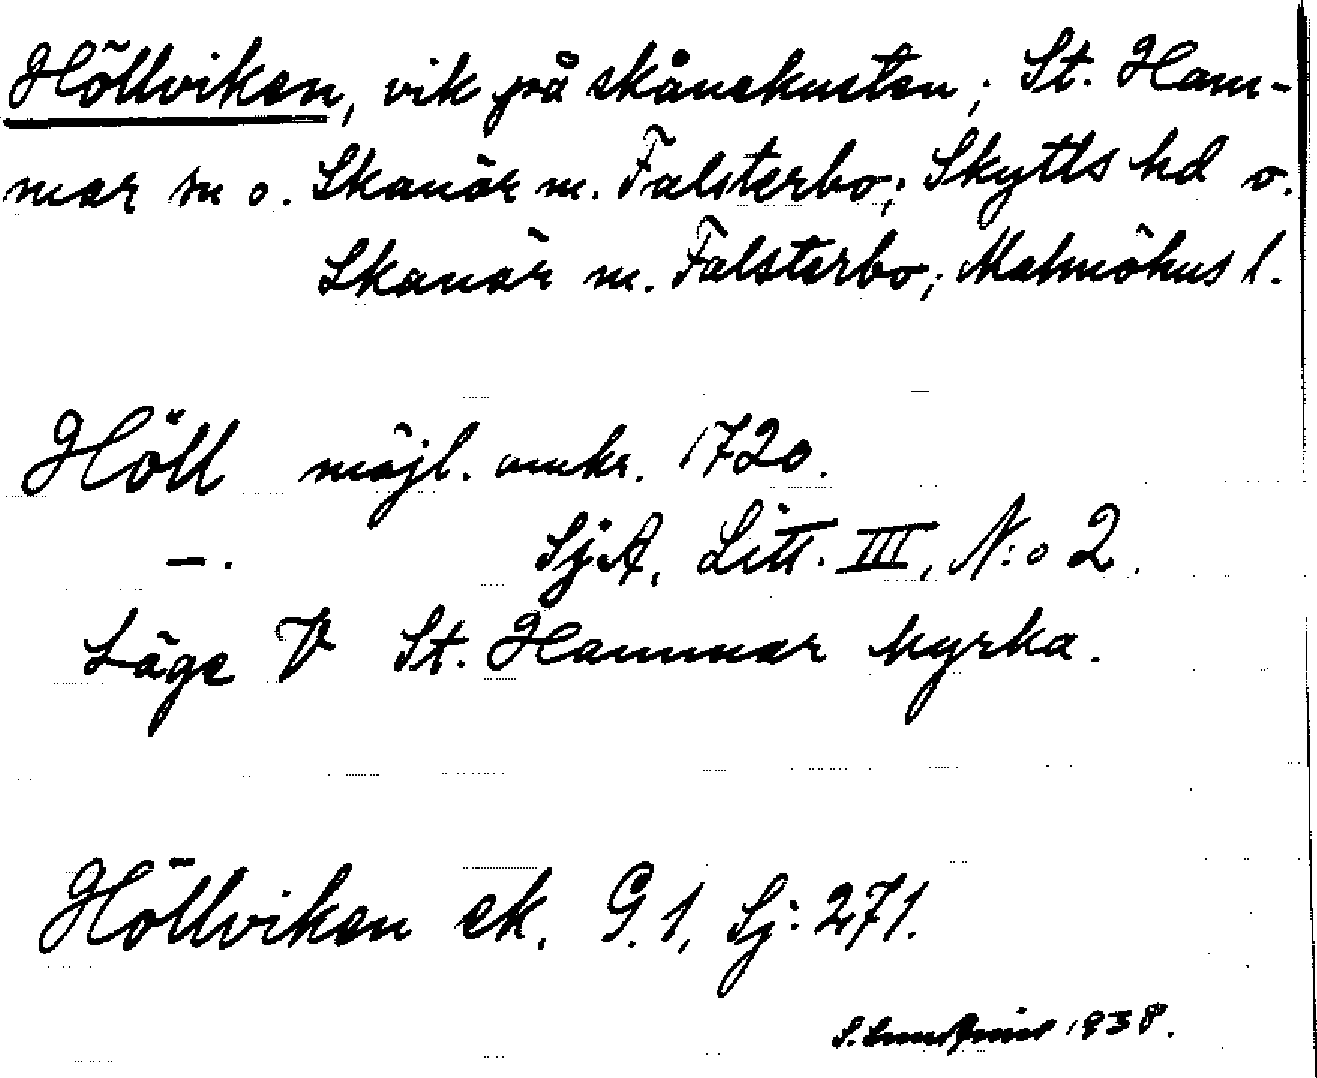 Höllviken, vik på skånekusten; St. Ham-
mar sn o. Skanör m. Falsterbo; Skytts hd o.
Skanör m. Falsterbo; Malmöhus l.
Höll möjl. omkr. 1720.
—. SjA, Litt. III, N:o 2.
Läge V St. Hammar kyrka.
Höllviken ek. G. 1, Sj: 271.
1938.